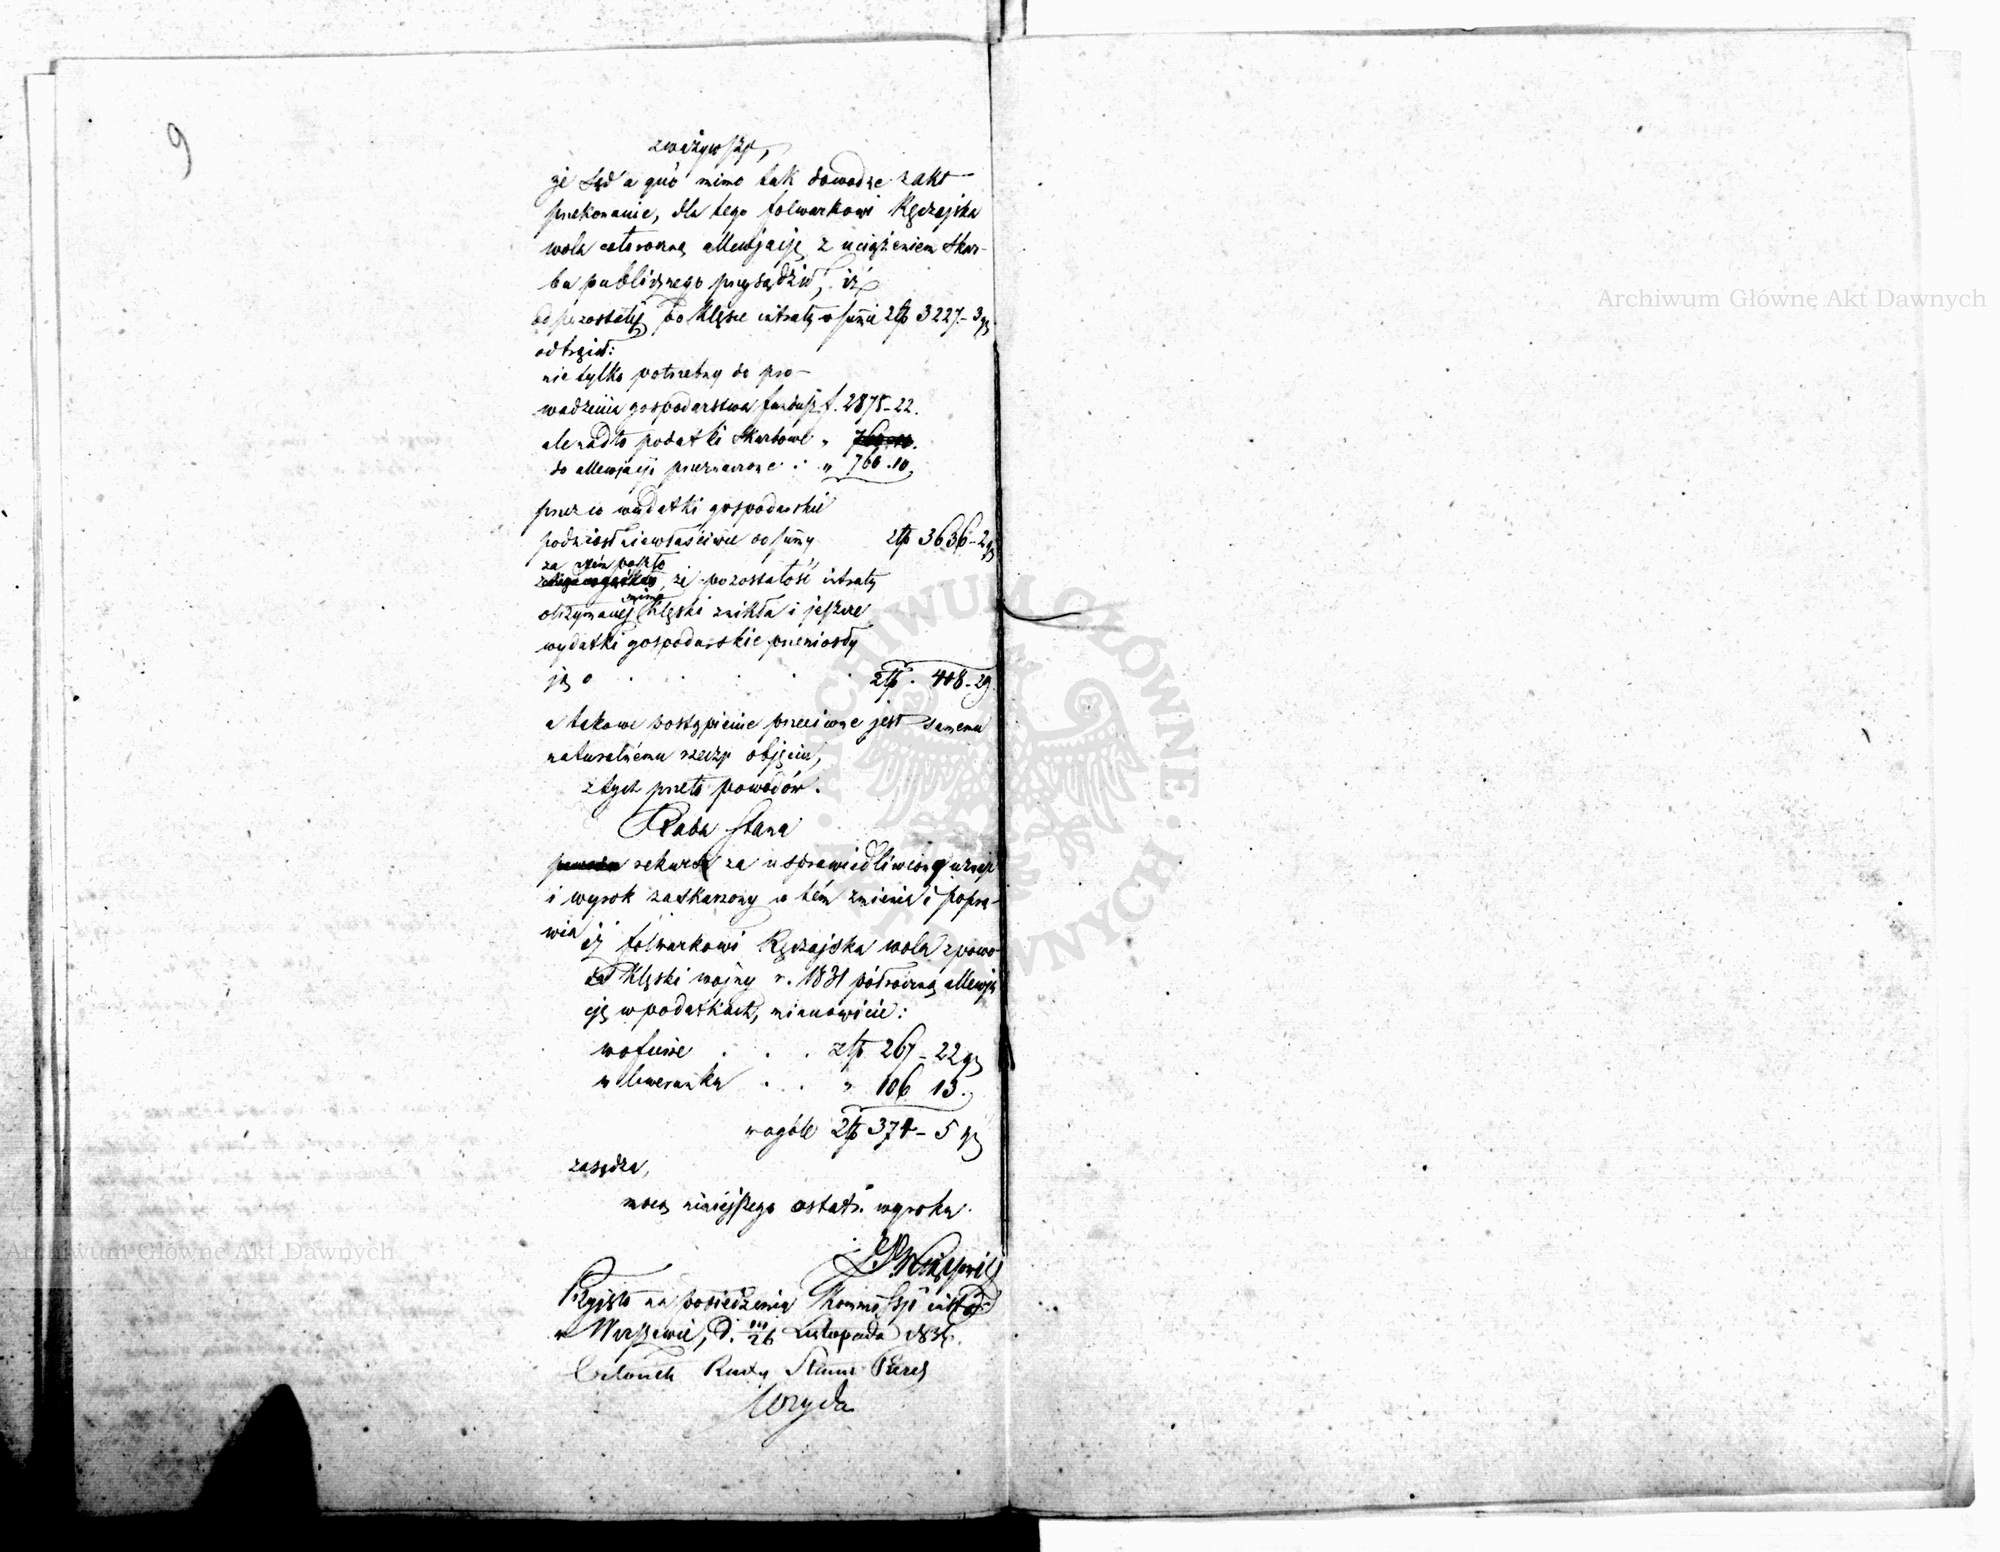 9
zważywszy,
że Sąd a quo mimo tak dowodze zakt
przekonanie, dla tego folwarkowi Kędzajska
wola całoroczną allewjacją z uciążeniem Skar-
bu publicznego przysądził, iż
od pozostałej po klęsce intraty w sumie złp 3227 - 3 gr
odtrącił:
nie tylko potrzebny do pro-
wadzenia gospodarstwa fundusz f. 2875 - 22.
ale nadto podatki Skarbowe "
do allewjacji przeznaczone . . " 760 . 10
przez co wydatki gospodarskie
podniósł niewłaściwie do summy złp 3636 - 2 gr
za czém poszło
że pozostałość intraty
otrzymanej mimo klęski znikła i jeszcze
wydatki gospodarskie przeniosły
ją o . . . . . złp. 408 - 29
a takowe postąpienie przeciwne jest samemu
naturalnemu rzeczy objęciu,
z tych przeto powodów.
Rada Stanu
rekurs za usprawiedliwiony uznaje
i wyrok zaskarżony w tém zmienia i popra-
wia iż folwarkowi Kędzajska wola z powo-
du klęski wojny r. 1831 półroczną allewja
cję w podatkach, mianowicie:
w ofierze . . . złp 267 - 22 gr
w liwerunku . . " 106 13.
w ogóle złp 374 - 5 gr
zasądza,
mocą niniejszego ostatn. wyroku.
Przyjęto na posiedzeniu Kommissji
w Warszawie, d. 26 Listopada
Członek Rady Stanu Prezes
Woyda
Archiwum Główne Akt Dawnych
Archiwum Główne Akt Dawnych
ARCHIWUM GŁÓWNE AKT DAWNYCH